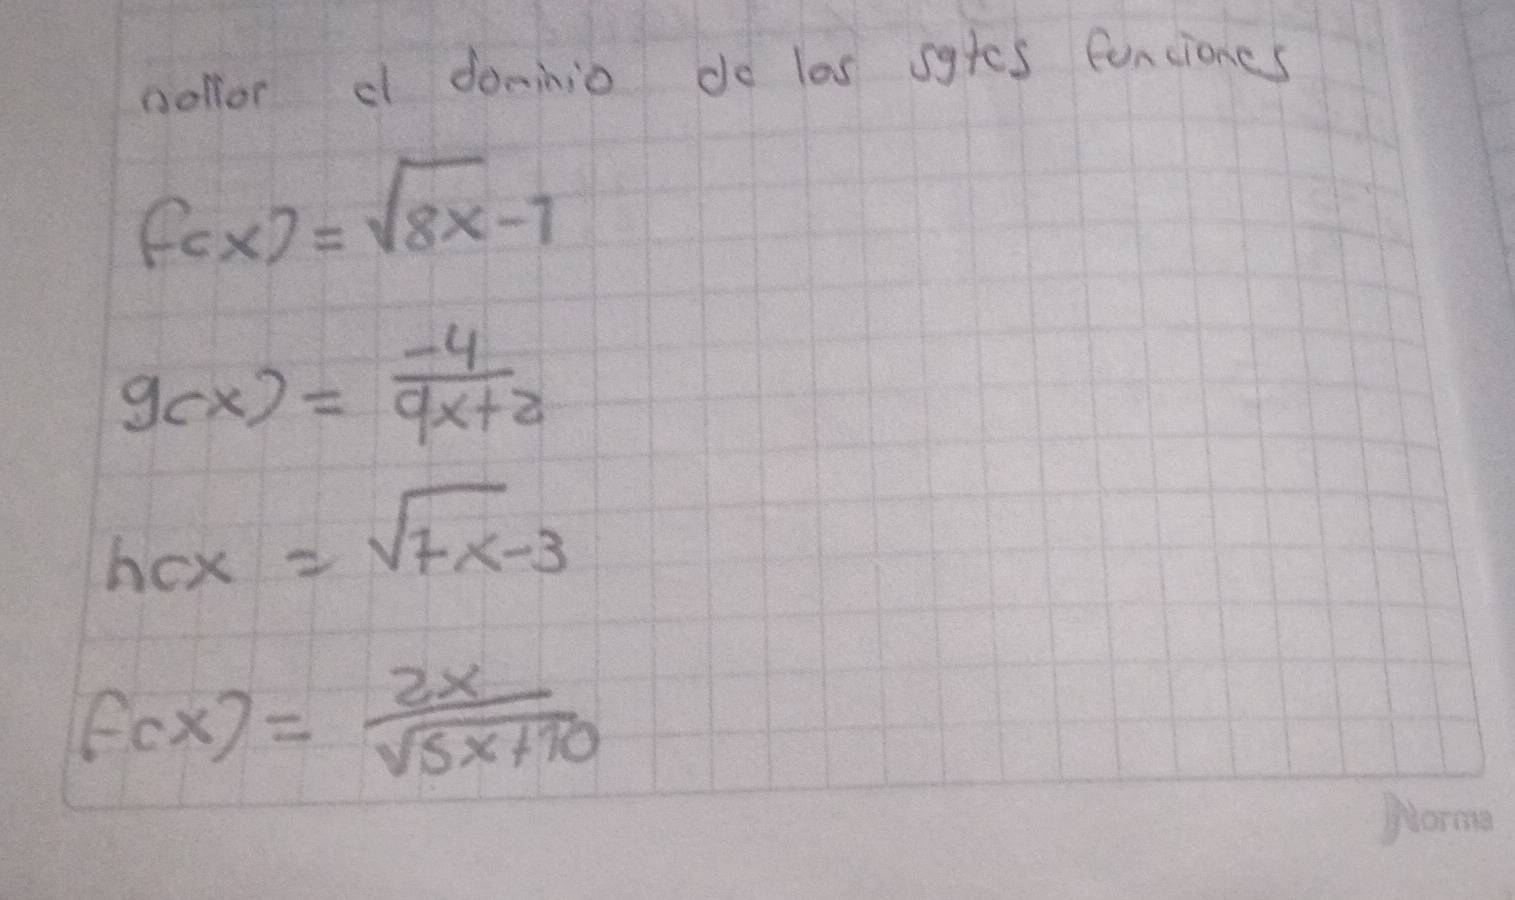 hallar el dominio de las sgtes funciones
f(x) = √8x - 1
g(x) = -4/9x+2
h(x = √7x - 3
f(x) = 2x/√5x+10
Norma